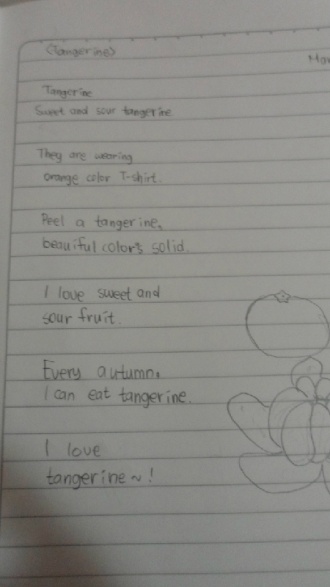 <Tangerine>
Tangerine
Sweet and sour tangerine
They are wearing
orange color T-shirt.
Peel a tangerine,
beauiful color's solid.
I love sweet and
sour fruit.
Every autumn,
I can eat tangerine.
I love
tangerine~!